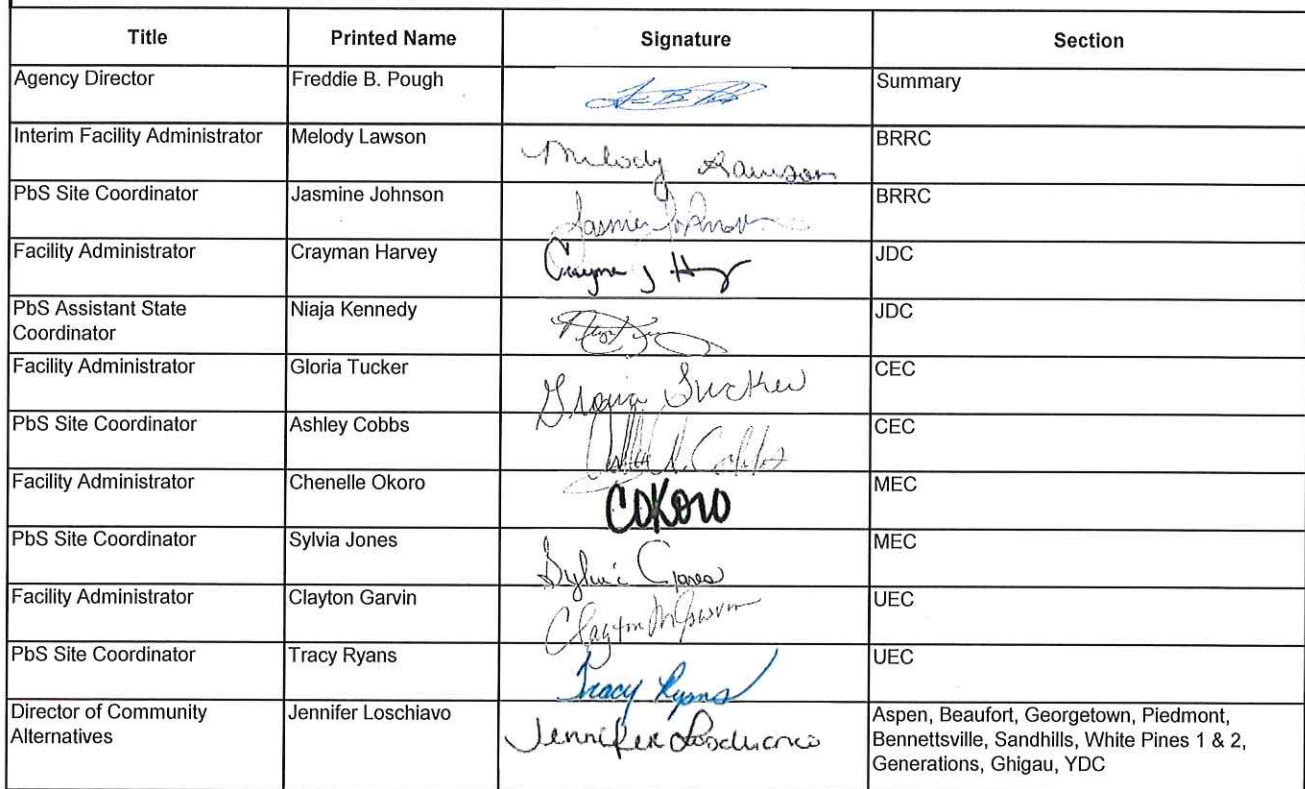 Title Printed Name Signature Section
Agency Director Freddie B. Pough Summary
Interim Facility Administrator Melody Lawson Melody Lawson BRRC
PbS Site Coordinator Jasmine Johnson Jasmine Johnson BRRC
Facility Administrator Crayman Harvey JDC
PbS Assistant State
Coordinator Niaja Kennedy JDC
Facility Administrator Gloria Tucker Gloria Tucker CEC
PbS Site Coordinator Ashley Cobbs CEC
Facility Administrator Chenelle Okoro COKORO MEC
PbS Site Coordinator Sylvia Jones Sylvia Jones MEC
Facility Administrator Clayton Garvin Clayton M Garvin UEC
PbS Site Coordinator Tracy Ryans Tracy Ryans UEC
Director of Community
Alternatives Jennifer Loschiavo Jennifer Loschiavo Aspen, Beaufort, Georgetown, Piedmont,
Bennettsville, Sandhills, White Pines 1 & 2,
Generations, Ghigau, YDC